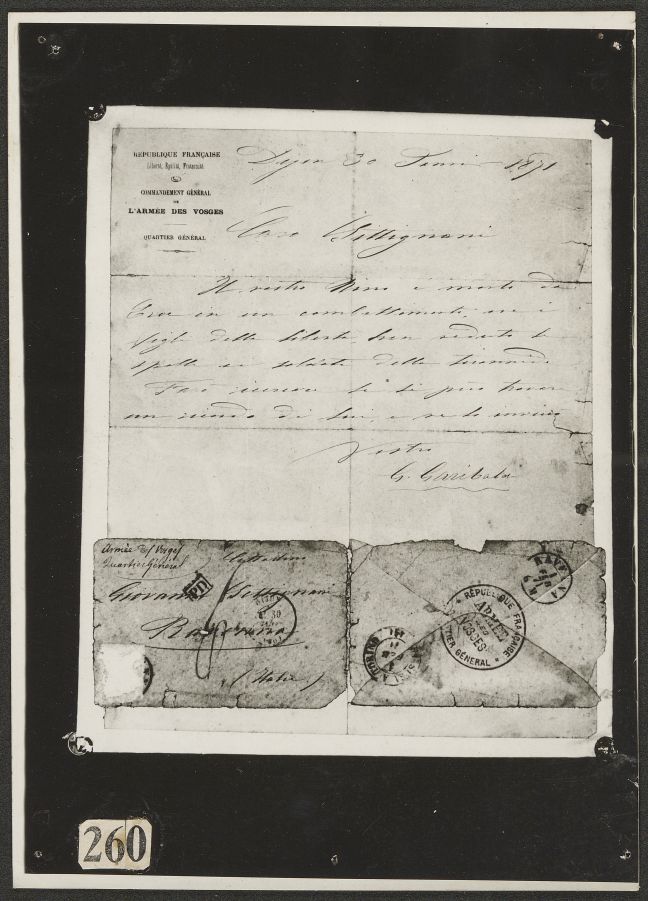 RÉPUBLIQUE FRANÇAISE
Liberté, Égalité, Fraternité
COMMANDEMENT GÉNÉRAL
DE
L'ARMÉE DES VOSGES
QUARTIER GÉNÉRAL
Dijon 30 1871
Caro
Il vostro Nino è morto da
Eroe in un combattimento, ove i
figli della libertà han veduto le
spalle ai soldati della tirannide
Farò se si può
un di lui, e ve lo
Vostro
G. Garibaldi
Armée des Vosges
Quartier Général
PD
Giovanni
Ravenna
(Italie)
30
RAVENNA
RÉPUBLIQUE FRANÇAISE
ARMÉE
DES
VOSGES
QUARTIER GÉNÉRAL
TORINO
260